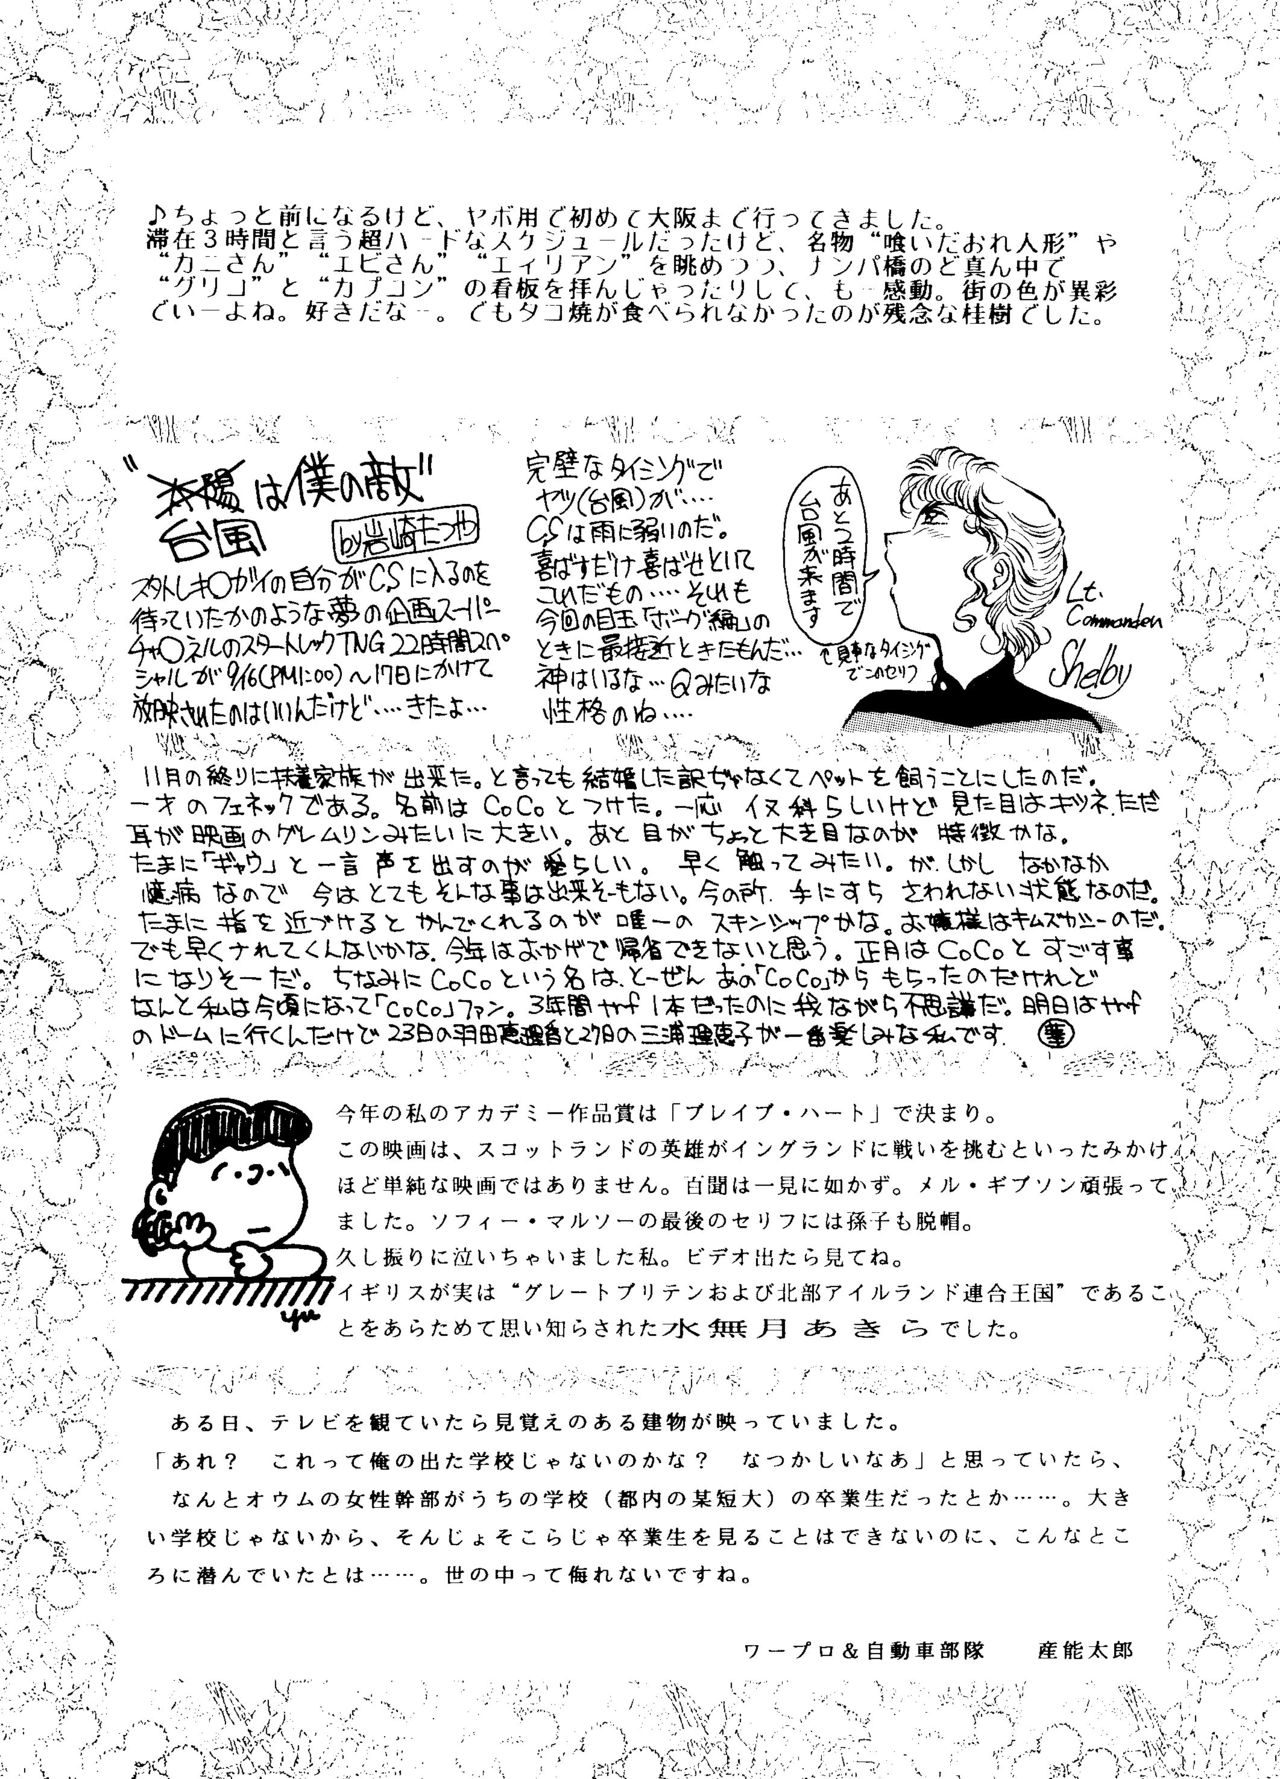 ♪ちょっと前になるけど、ヤボ用で初めて大阪まで行ってきました。
滞在3時間と言う超ハードなスケジュールだったけど、名物“喰いだおれ人形”や
“カニさん”“エビさん”“エィリアン”を眺めつつ、ナンパ橋のど真ん中で
“グリコ”と“カプコン”の看板を拝んじゃったりして、も一感動。街の色が異彩
でいーよね。好きだなー。でもタコ焼が食べられなかったのが残念な桂樹でした。
“太陽は僕の敵”
台風
by岩崎たつや
スタトレキ〇ガイの自分がC.S.に入るのを
待っていたかのような夢の企画スーパー
チャ〇ネルのスタートレックTNG22時間スペ
シャルが9/16(PM1:00)〜17日にかけて
放映されたのはいいんだけど‥‥きたよ…
完璧なタイミングで
ヤツ(台風)が‥‥
C.S.は雨に弱いのだ。
喜ばすだけ喜ばせといて
これだもの‥‥それも
今回の目玉「ボーグ編」の
ときに最接近ときたもんだ…
神はいるな…Qみたいな
性格のね‥‥
あと2時間で
台風が来ます
↑見事なタイミング
でこのセリフ
Lt.
Commander
Shelby
11月の終りに扶養家族が出来た。と言っても結婚した訳ぢゃなくてペットを飼うことにしたのだ。
一才のフェネックである。名前はCoCoとつけた。一応イヌ科らしいけど見た目はキツネ、ただ
耳が映画のグレムリンみたいに大きい。あと目がちょっと大き目なのが特徴かな。
たまに「ギャウ」と一言声を出すのが愛らしい。早く触ってみたい。が、しかしなかなか
臆病なので今はとてもそんな事は出来そーもない。今の所、手にすらさわれない状態なのだ。
たまに指を近づけるとかんでくれるのが唯一のスキンシップかな。お嬢様はキムズカシーのだ。
でも早くナれてくんないかな。今年はおかげで帰省できないと思う。正月はCoCoとすごす事
になりそーだ。ちなみにCoCoという名は、とーぜんあの「CoCo」からもらったのだけれど
なんと私は今頃になって「CoCo」ファン。3年間ヤmf1本だったのに我ながら不思議だ。明日はヤmf
のドームに行くんだけで23日の羽田恵理香と27日の三浦理恵子が一番楽しみな私です。
今年の私のアカデミー作品賞は「ブレイブ・ハート」で決まり。
この映画は、スコットランドの英雄がイングランドに戦いを挑むといったみかけ
ほど単純な映画ではありません。百聞は一見に如かず。メル・ギブソン頑張って
ました。ソフィー・マルソーの最後のセリフには孫子も脱帽。
久し振りに泣いちゃいました私。ビデオ出たら見てね。
イギリスが実は“グレートブリテンおよび北部アイルランド連合王国”であるこ
とをあらためて思い知らされた水無月あきらでした。
yu
ある日、テレビを観ていたら見覚えのある建物が映っていました。
「あれ？　これって俺の出た学校じゃないのかな？　なつかしいなあ」と思っていたら、
なんとオウムの女性幹部がうちの学校（都内の某短大）の卒業生だったとか……。大き
い学校じゃないから、そんじょそこらじゃ卒業生を見ることはできないのに、こんなとこ
ろに潜んでいたとは……。世の中って侮れないですね。
ワープロ＆自動車部隊　　産能太郎